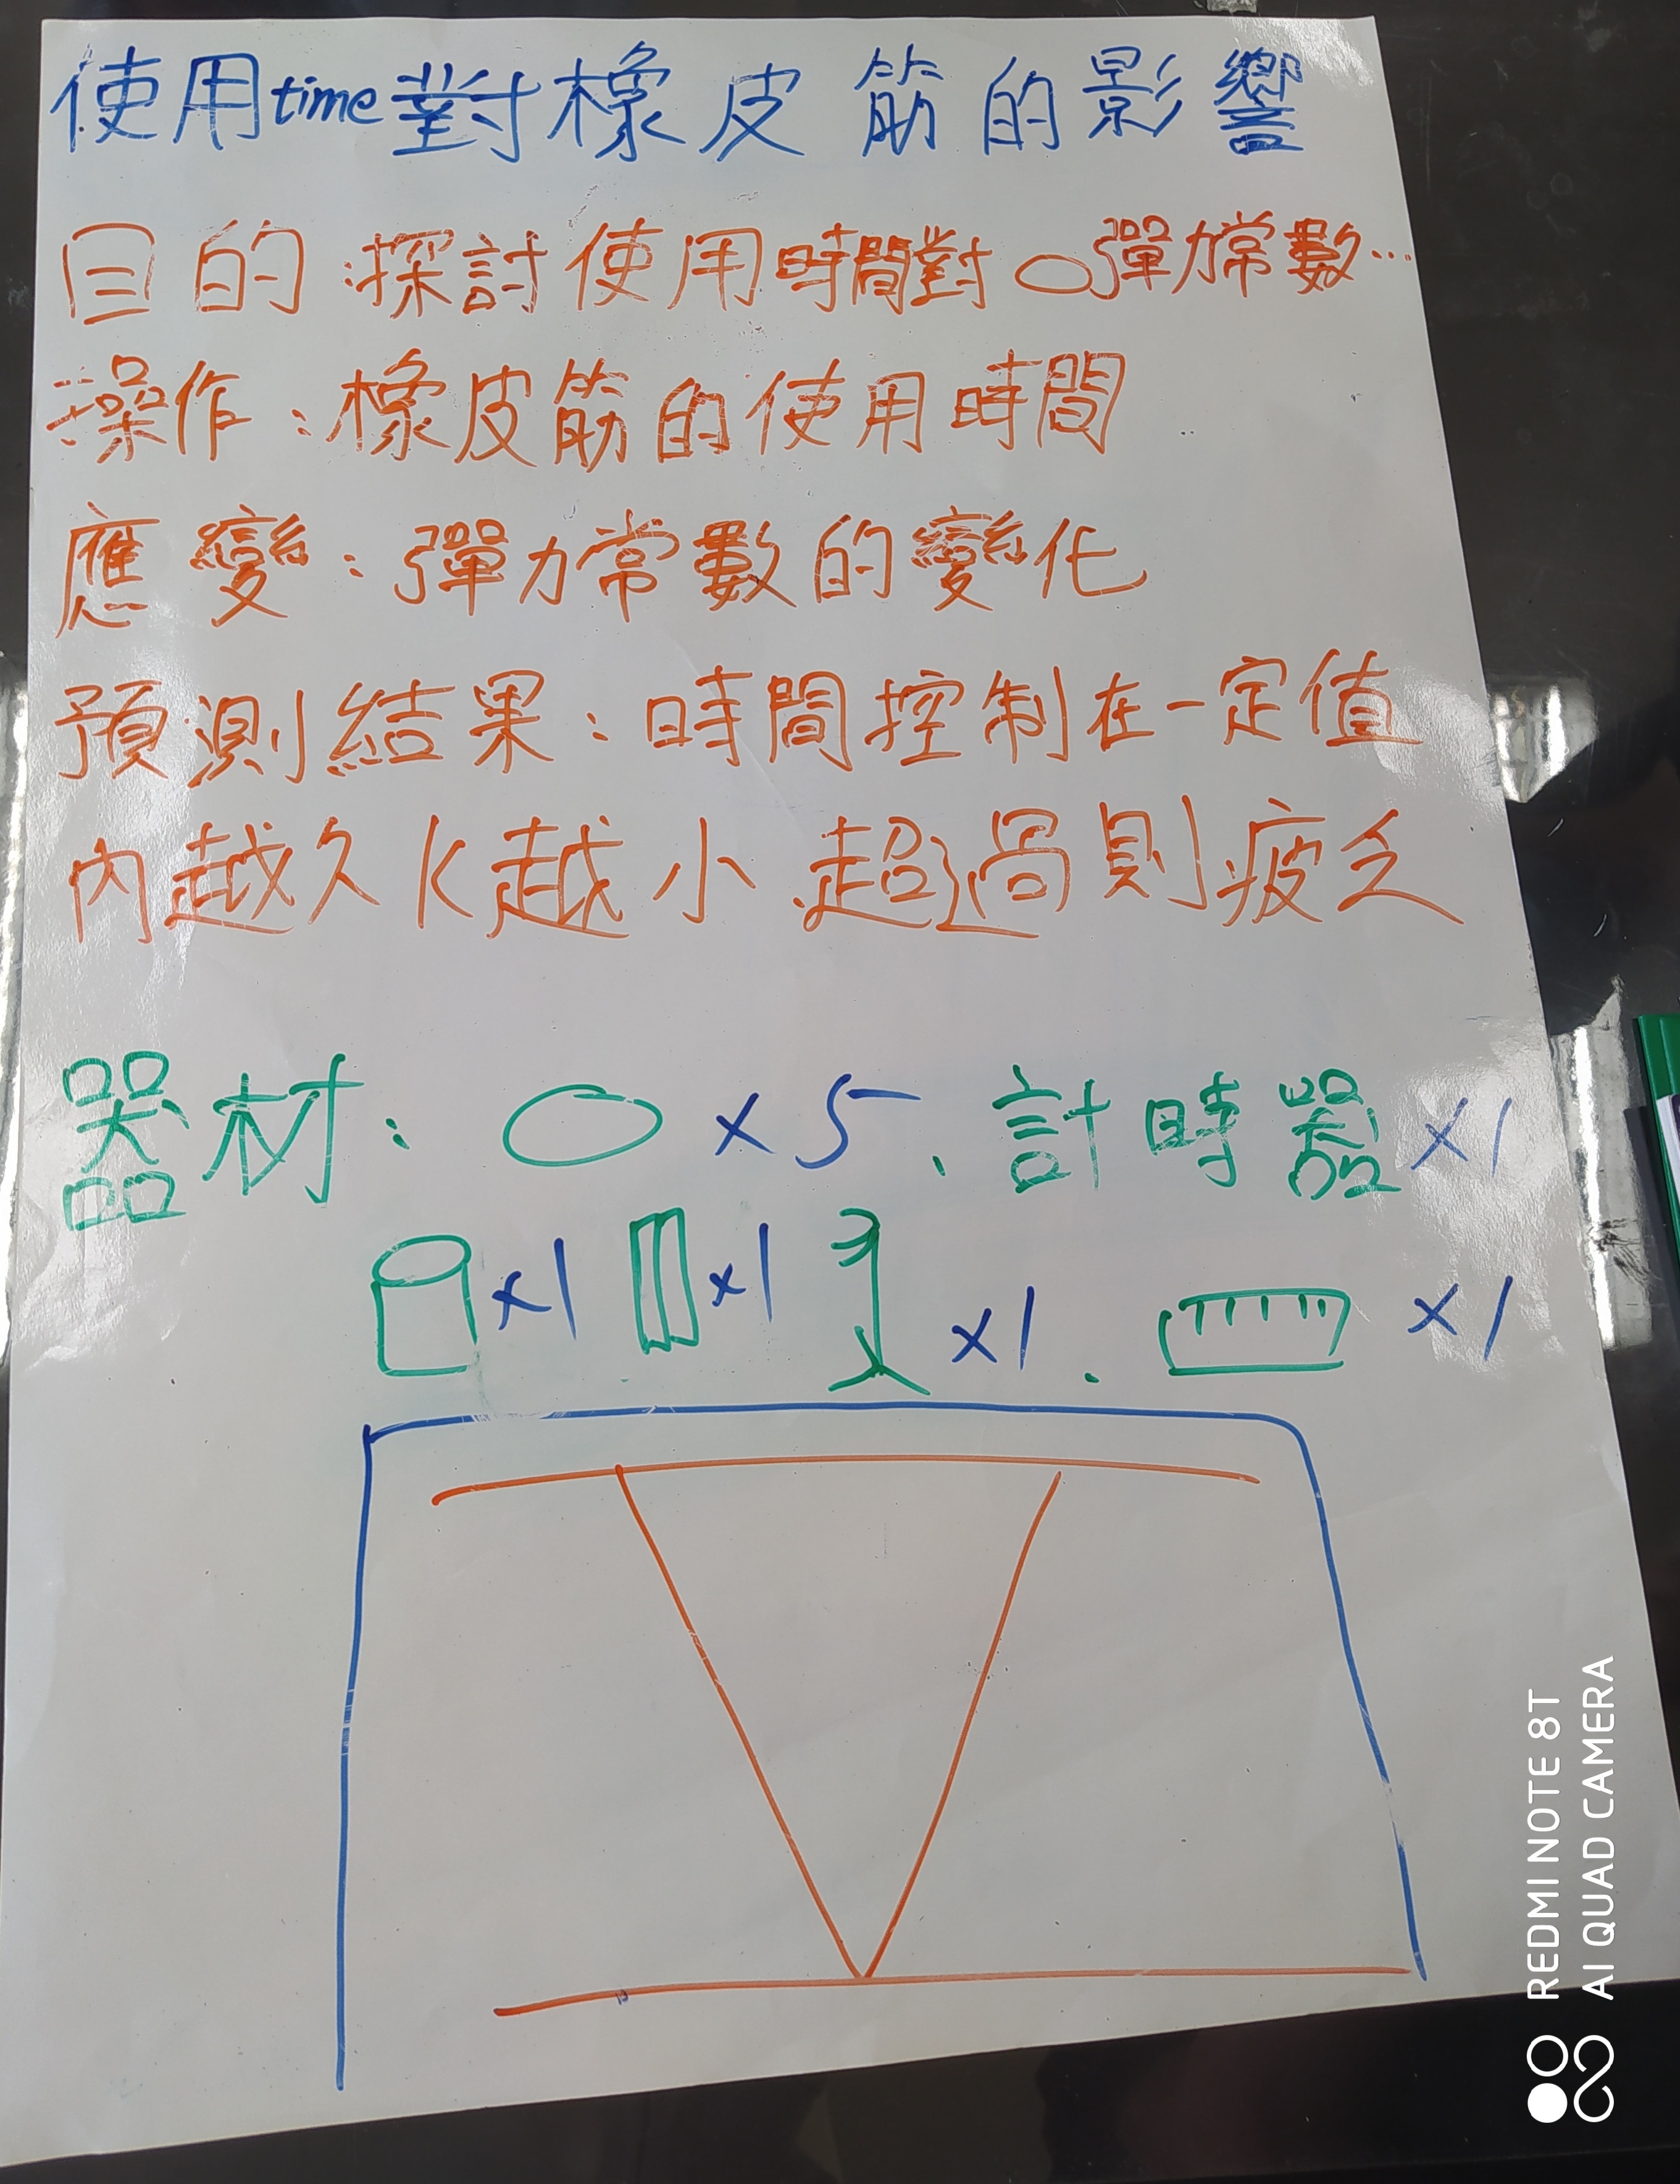 使用time對橡皮筋的影響
目的:探討使用時間對○彈力常數…
操作:橡皮筋的使用時間
應變:彈力常數的變化
預測結果:時間控制在一定值
內越久K越小.超過則疲乏
器材:○×5、計時器×1
×1 ×1 ×1、×1
REDMI NOTE 8T
AI QUAD CAMERA